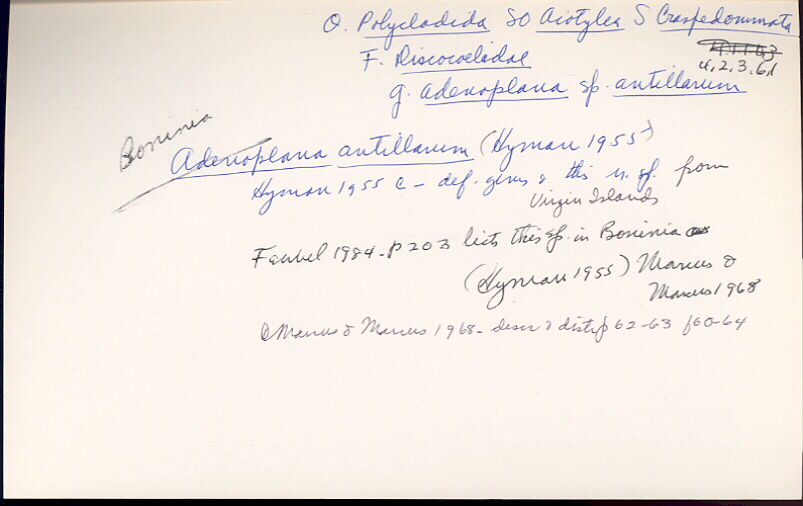 O. Polycladida SO Acotylea S Craspedommata
4,2,3.61
F. Discocoelidae
g. Adenoplana sp. antillarum
Boninia
Adenoplana antillarum (Hyman 1955)
Hyman 1955 c - def. genus & this n. sp. from
Virgin Islands
Faubel 1984 - p 203 lists this sp. in Boninia as
(Hyman 1955) Marcus &
Marcus 1968
Marcus & Marcus 1968 - descr & distr p 62-63 f60-64